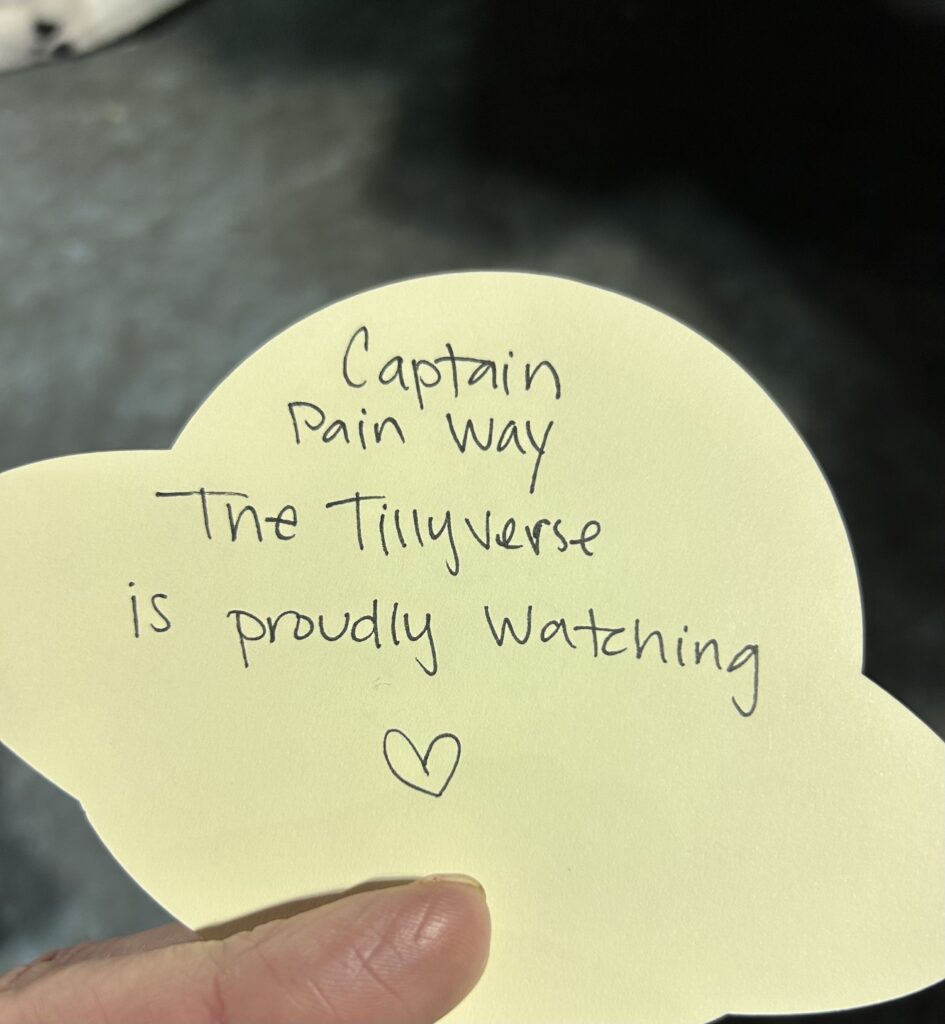 Captain
Pain Way
The Tillyverse
is proudly watching